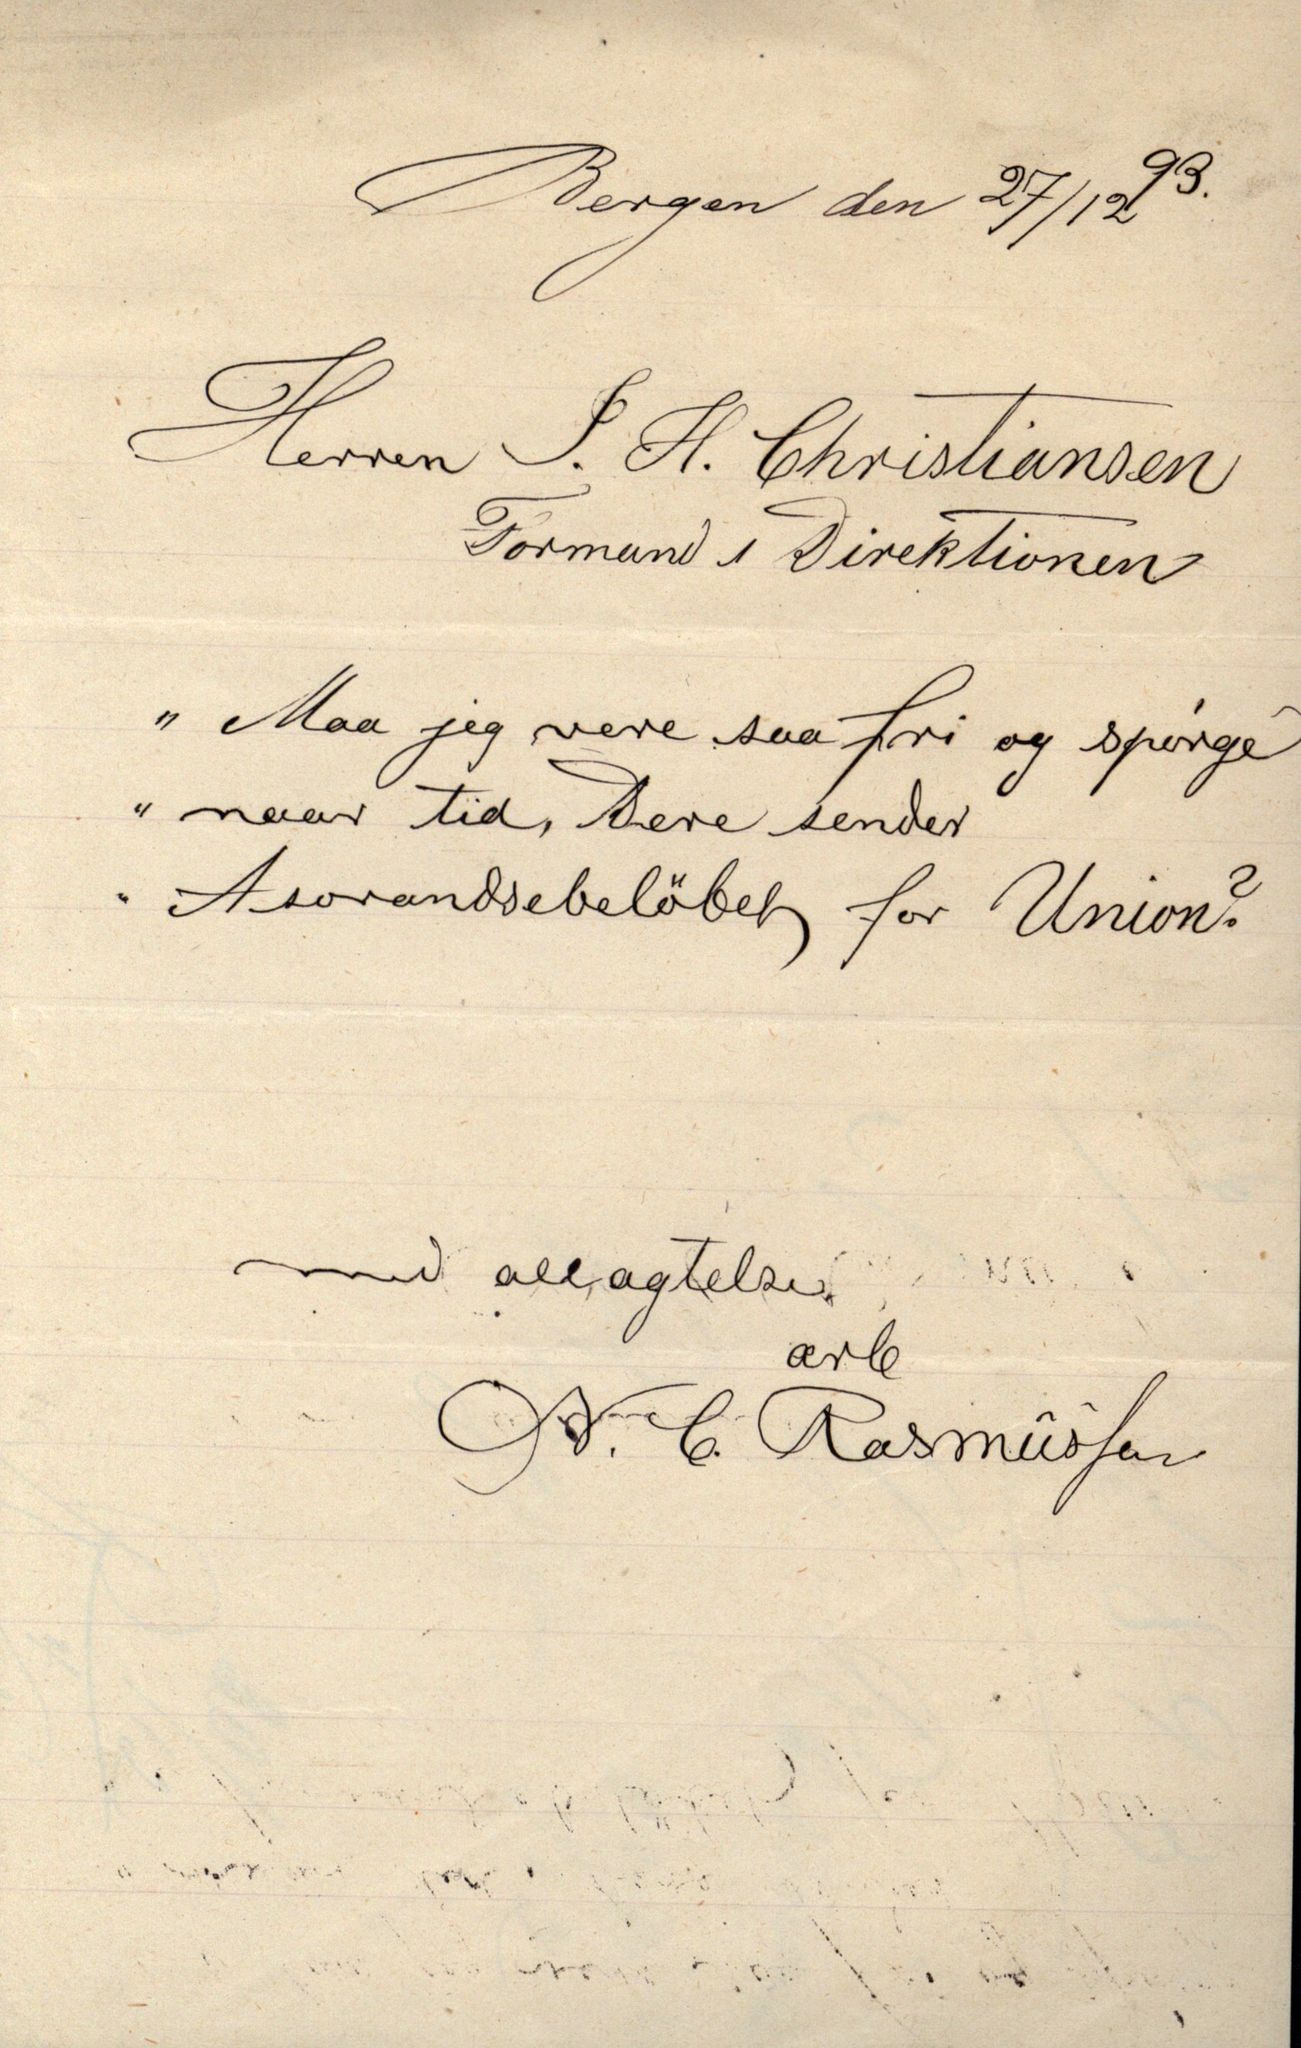 Bergen den 27/12 93.
Herren J. H. Christiansen
Formand i Direktionen
" Maa jeg vere saa fri og spørge
" naar tid, Dere sender
" Asorandsebelöbet for Union?
med all agtelse
ærb
N. C. Rasmüssen